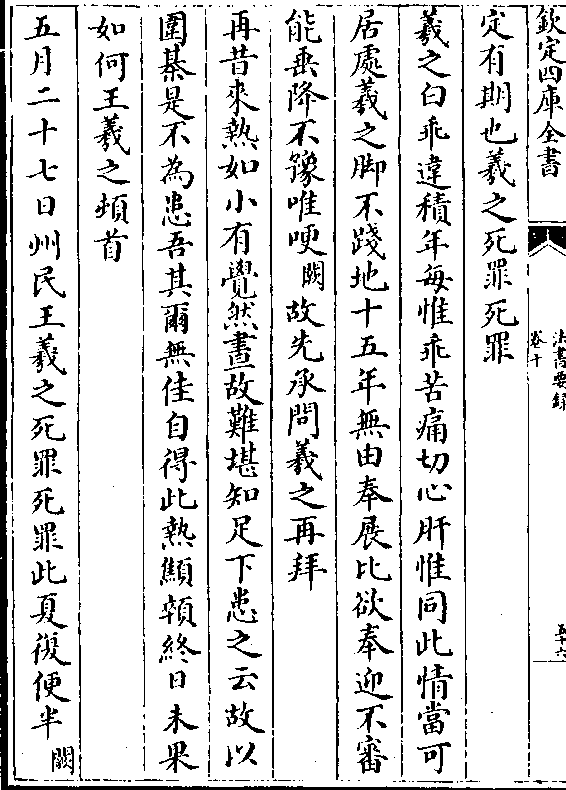 欽定四庫全書
法書要録
卷十
五十六
定有期也羲之死罪死罪
羲之白乖違積年每惟乖苦痛切心肝惟同此情當可
居處羲之脚不踐地十五年無由奉展比欲奉迎不審
能垂降不豫唯哽闕故先承問羲之再拜
再昔來熱如小有覺然晝故難堪知足下患之云故以
圍棊是不為患吾其爾無佳自得此熱顯頓終日未果
如何王羲之頓首
五月二十七日州民王羲之死罪死罪此夏復便半闕